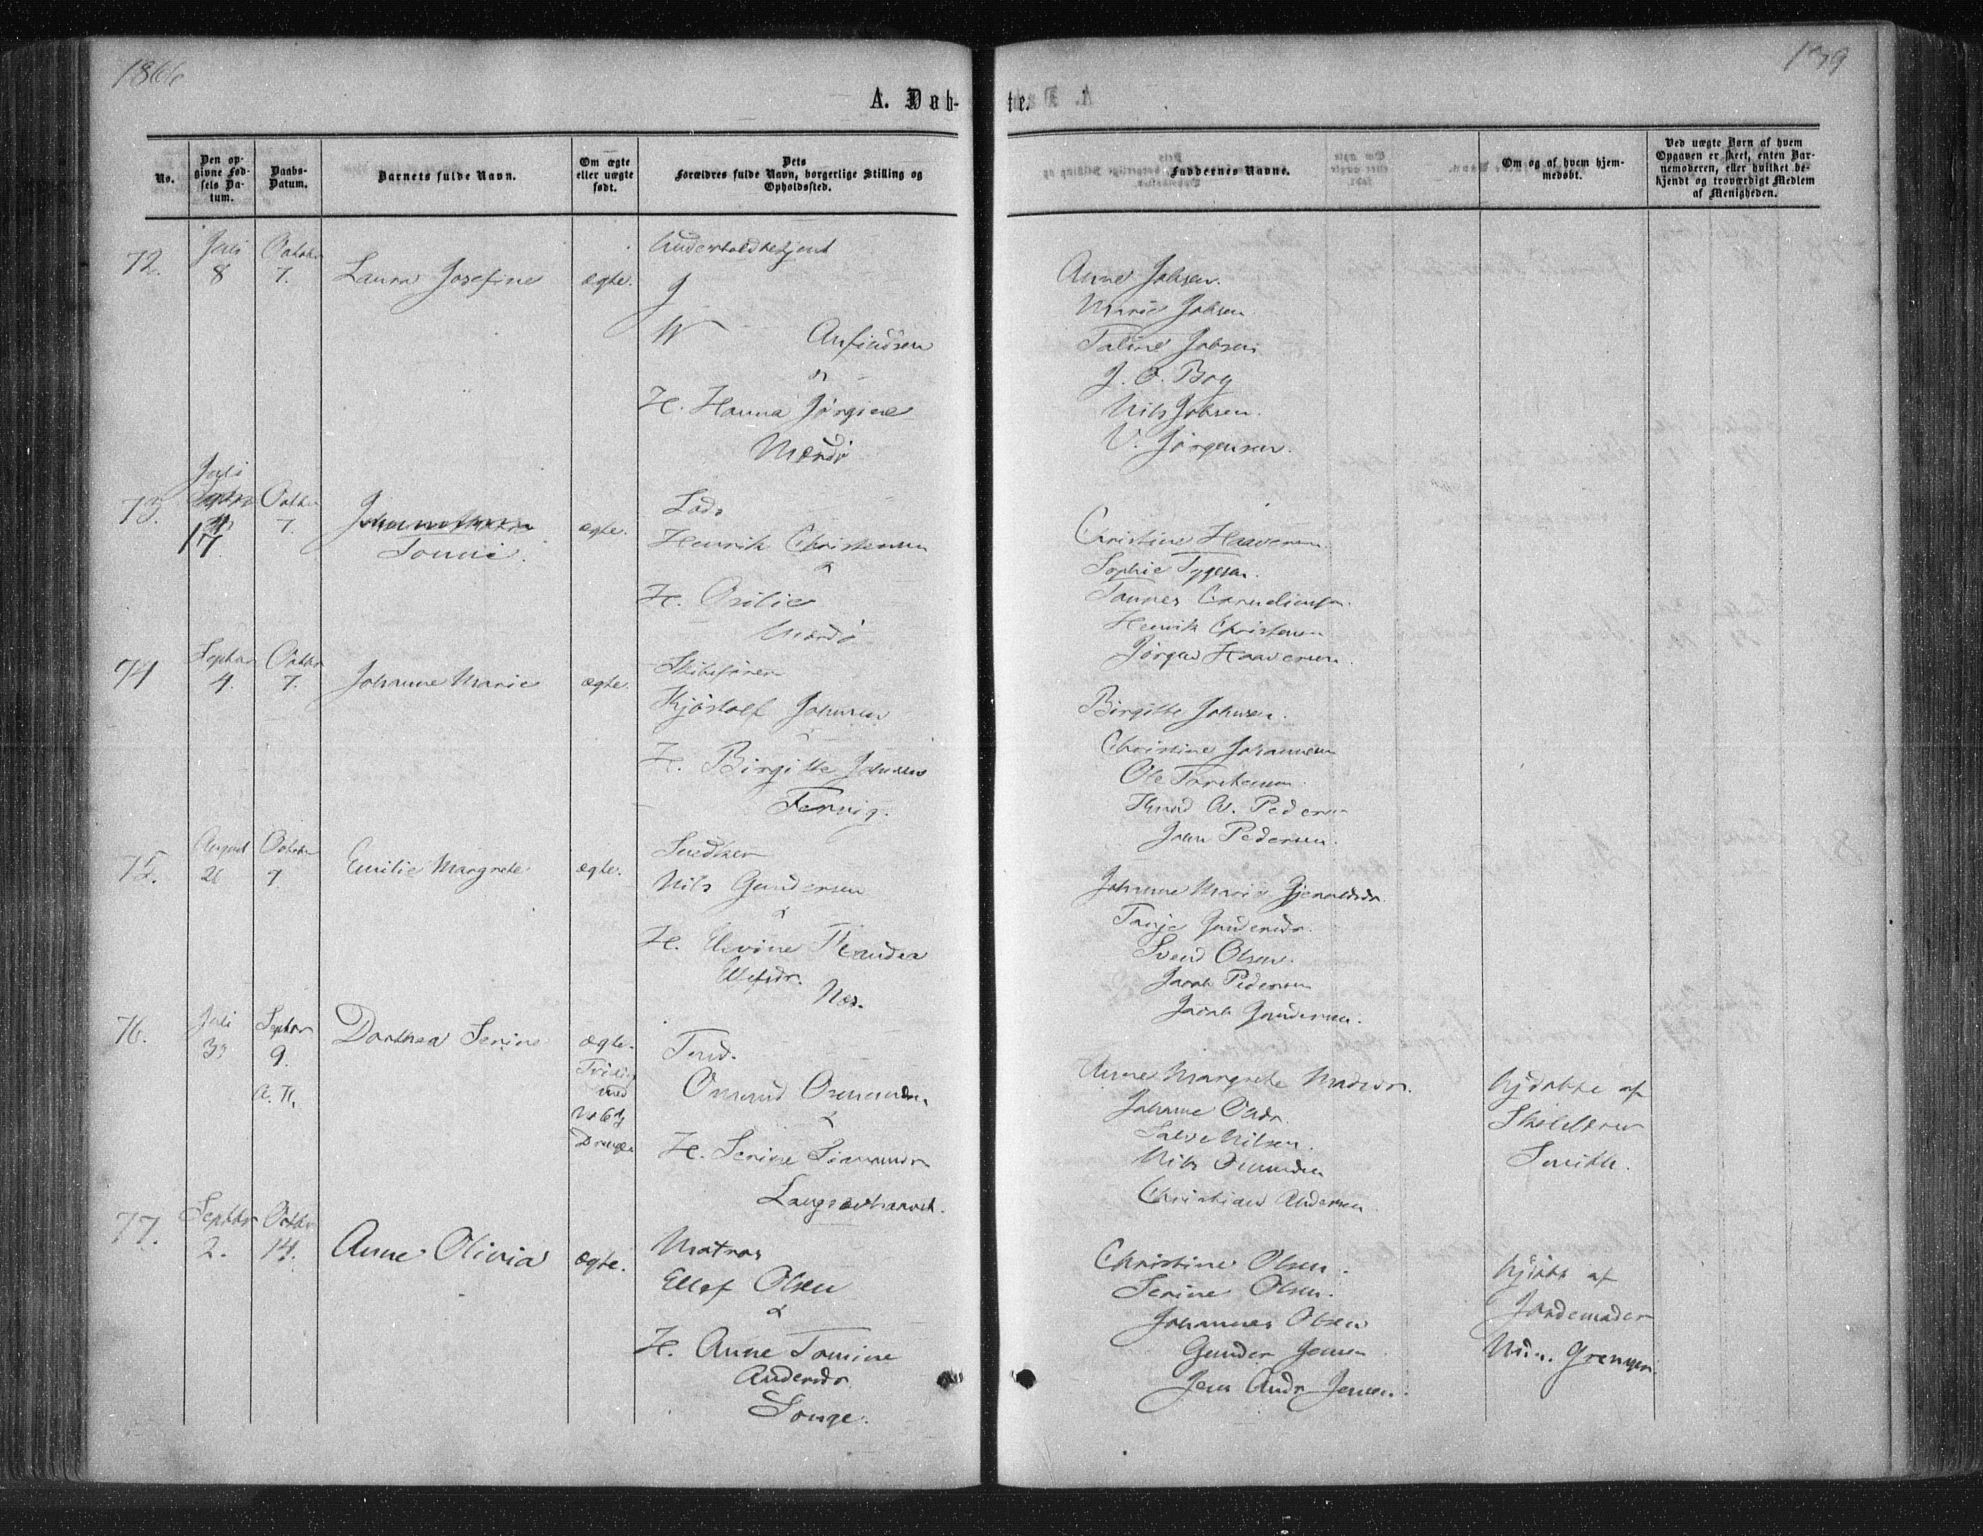 1866
139
A. Dab-
te.
No.
Den op-
givne Fød-
sels Da-
tum.
Daabs-
Datum.
Barnets fulde Navn.
Om ægte
eller uægte
født.
Dets
Forældres fulde Navn, borgerlige Stilling og
Opholdssted.
Faddernes Navne.
Om og af hvem hjem-
medøbt.
Ved uægte Børn af hvem
Opgaven er skeet, enten Bar-
nemoderen, eller hvilket be-
kjendt og troværdigt Medlem
af Menigheden.
72.
Juli
8
October
7.
Laura Josefine
ægte.
J
W
Anfindsen
&
H. Hanna Jørgine
Mærdø
Anne Jobsen.
Marie Jobsen
Taline Jobsen
J. O. Boy
Nils Jobsen.
V. Jørgensen.
73.
Juli
17
Octbr
7.
Tomine.
ægte.
Lods
Henrik Christensen
&
H. Otilie
Mærdø
Christine Haaversen
Sophie Tygesen.
Tønnes Corneliusen.
Henrik Christensen
Jørgen Haaversen.
74
Septbr
4.
Octbr
7.
Johanne Marie
ægte.
Skibsfører
Kjøstolf Johnsen
&
H. Birgitte Johnsen
Fervig.
Birgitte Johnsen.
Christine Johannesen
Ole Torstensen.
Knud A. Pedersen
John Pedersen.
75.
August
26
October
7
Emilie Margrete
ægte.
Snedker
Nils Gundersen
&
H. Elevine Thendea
Elefsdr.
Næs.
Johanne Marie Gjeruldsdr.
Tarje Gundersdr.
Svend Olsen.
Jacob Pedersen
Jacob Gundersen.
76.
Juli
30
Septbr
9
Dorthea Serine
ægte.
Tvilling
med
No 69
Drenge
Tømd.
Omund Osmundsen
&
H. Serine Simonsdr
Langsævhavnet.
Anne Margrete Madsdr.
Johanne Olsdr.
Salve Nilsen.
Nils Omundsen
Christian Andersen
hjdøbte af
Skolelærer
Smith.
77.
Septbr
2.
Octbr
14.
Anne Olivia
ægte.
Matros
Ellef Olsen
&
H. Anne Tomine
Andersdr
Songe.
Christine Olsen.
Serine Olsen.
Johannes Olsen
Gunder Jensen
Jens Andr Jensen.
hjdøbt af
Jordemoder
Grenger.